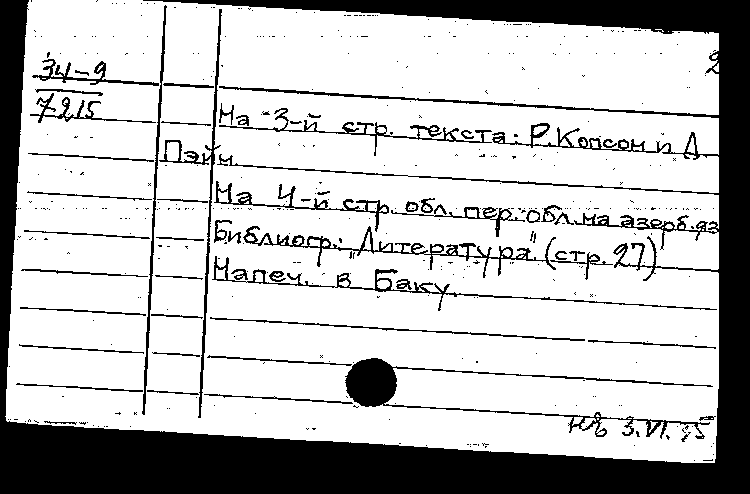 2
34-9
7215
На 3-й стр. текста: Р. Копсон и Д.
Пэйн.
На 4-й стр. обл. пер. обл. на азерб. яз
Библиогр.: „Литература" (стр. 27)
Напеч. в Баку.
3.VI.35